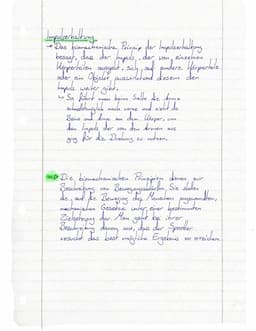 Impulserhaltung
→ Das biomechanische Prinzip der Impulserhaltung
besagt, dass der Impuls, der von einzelnen
Körperteilen ausgeht, sich auf andere Körperteile
oder ein Objekt und diesem den
Impuls weiter gibt.
↳ So führt man beim Salto die Arme
nach vorne und zieht die
Beine und Arme an den Körper, um
den Impuls der von den Armen aus
ging für die Drehung zu nutzen.
Die biomechanischen Prinzipien dienen zur
Beschreibung von Bewegungsabläufen. Sie stellen
die, auf die Bewegung des Menschen angewandten,
mechanischen Gesetze unter einer bestimmten
Zielsetzung dar. Man geht bei ihrer
Beschreibung davon aus, dass der Sportler
versucht das best mögliche Ergebnis zu erreichen.